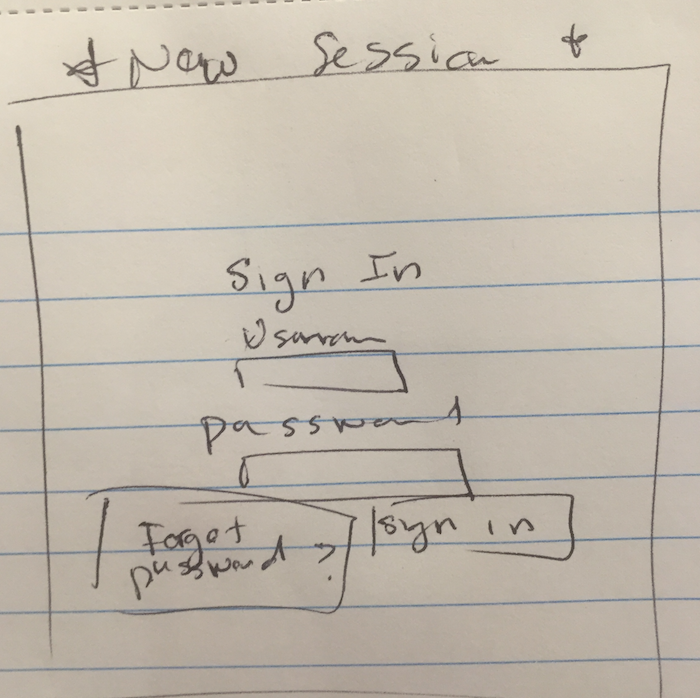 * New Session *
Sign In
Username
password
Forgot
password ?
sign in